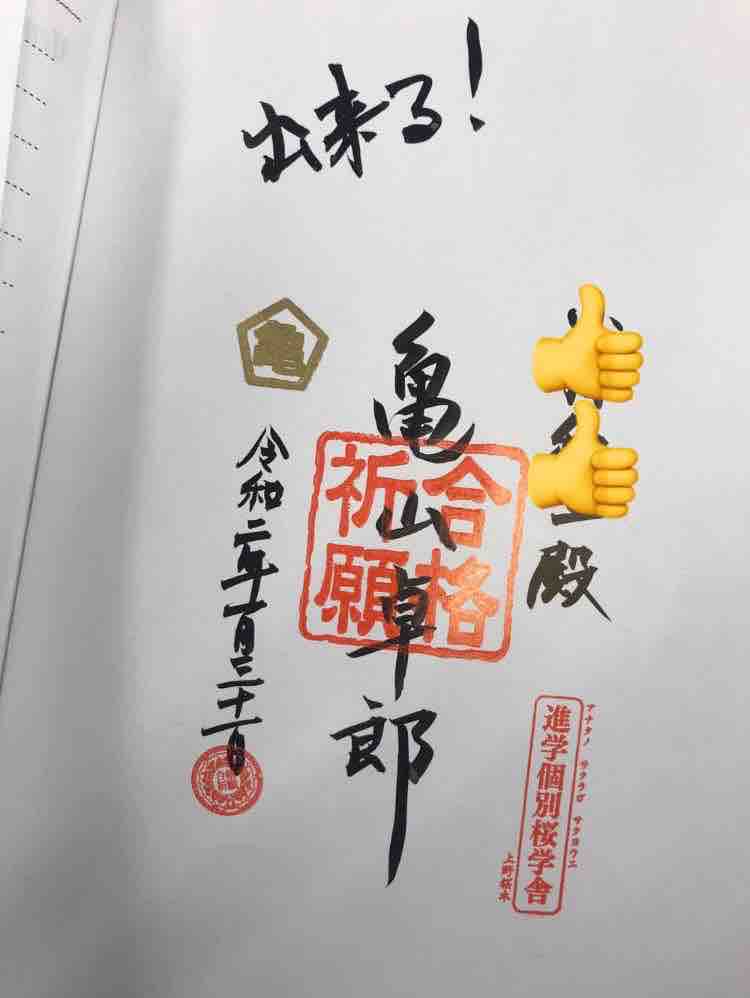 出来る！
殿
亀山卓郎
合格
祈願
亀
令和二年一月三十一日
アナタノ サクラガ サクヨウニ
進学個別桜学舎
上野桜木